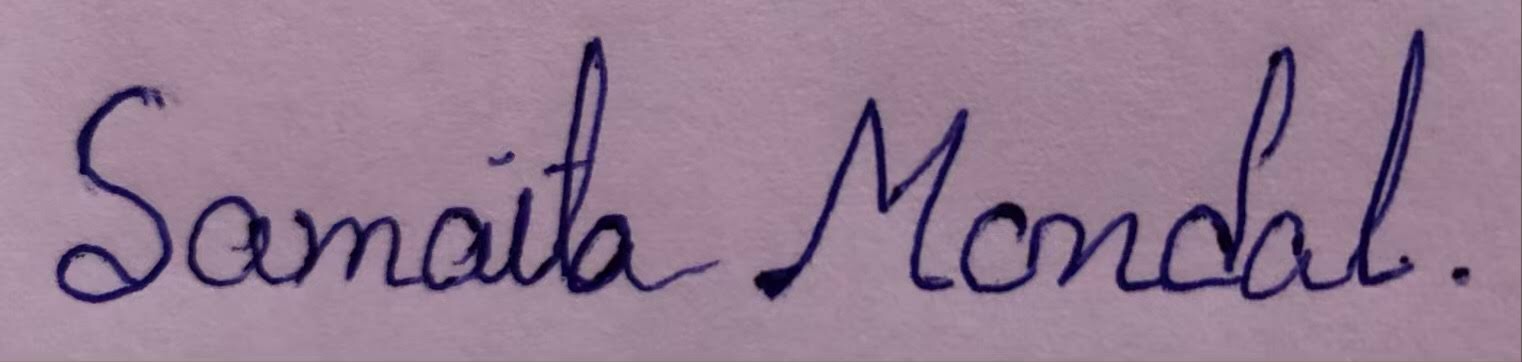 Samaita Mondal.